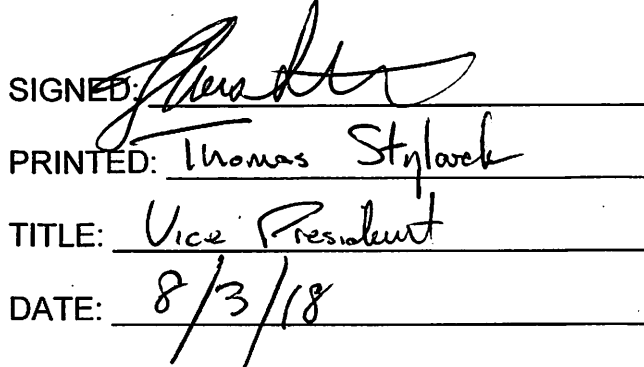 SIGNED:
PRINTED: Thomas
TITLE: Vice President
DATE: 8/3/18